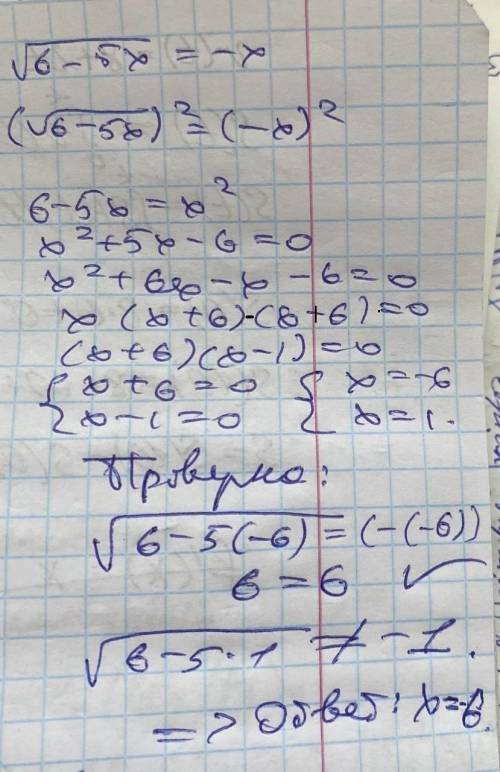 √6-5x = -x
(√6-5x)² = (-x)²
6-5x = x²
x²+5x-6=0
x²+6x-x-6=0
x(x+6)-(x+6)=0
(x+6)(x-1)=0
{ x+6=0 { x=-6
{ x-1=0 { x=1.
Проверка:
√6-5(-6) = (-(-6))
6=6 ✓
√6-5·1 ≠ -1.
=> Ответ: x=-6.